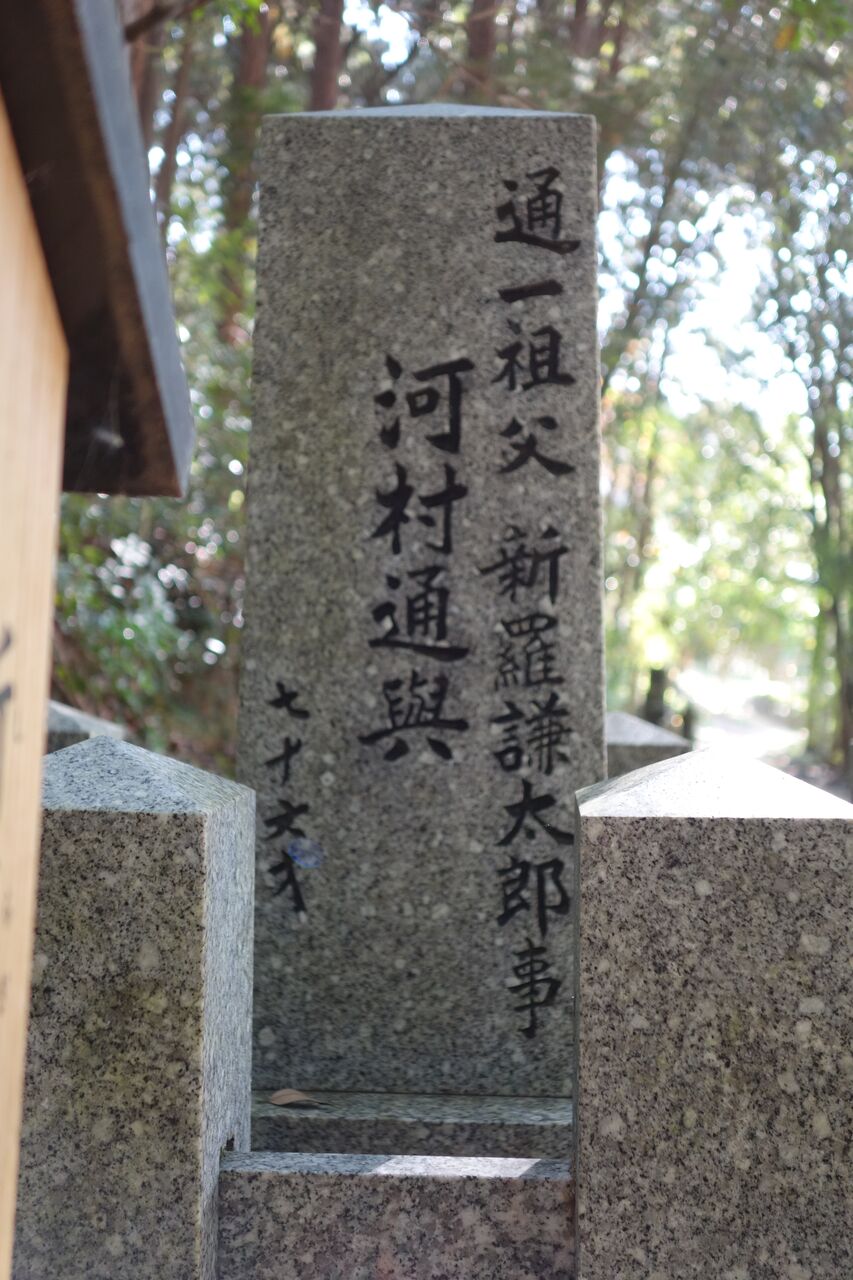 通一祖父　新羅謙太郎事
河村通與
七十六才